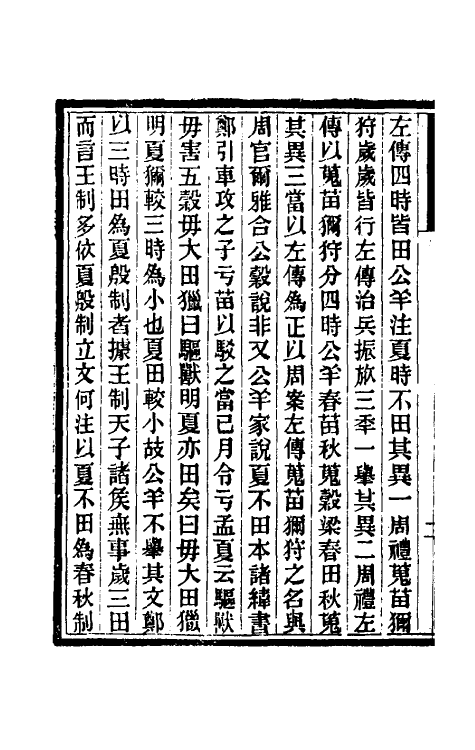 左傳四時皆田公羊注夏時不田其異一周禮蒐苗獮
狩歲歲皆行左傳治兵振旅三秊一舉其異二周禮左
傳以蒐苗獮狩分四時公羊春苗秋蒐穀梁春田秋蒐
其異三當以左傳為正以周案左傳蒐苗獮狩之名與
周官爾雅合公穀說非又公羊家說夏不田本諸緯書
鄭引車攻之子亏苗以駁之當已月令亏孟夏云驅獸
毋害五穀毋大田獵曰驅獸明夏亦田矣曰毋大田獵
明夏獮較三時為小也夏田較小故公羊不舉其文鄭
以三時田為夏殷制者據王制天子諸矦無事歲三田
而言王制多依夏殷制立文何注以夏不田為春秋制